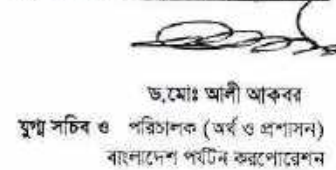 ড.মোঃ আলী আকবর
যুগ্ম সচিব ও পরিচালক (অর্থ ও প্রশাসন)
বাংলাদেশ পর্যটন করপোরেশন